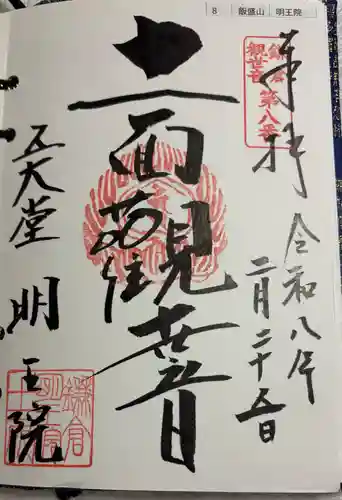 8 飯盛山 明王院
奉拝
鎌倉
観世音
第八番
令和八年
二月二十五日
十一面観世音
五大堂 明王院
鎌倉